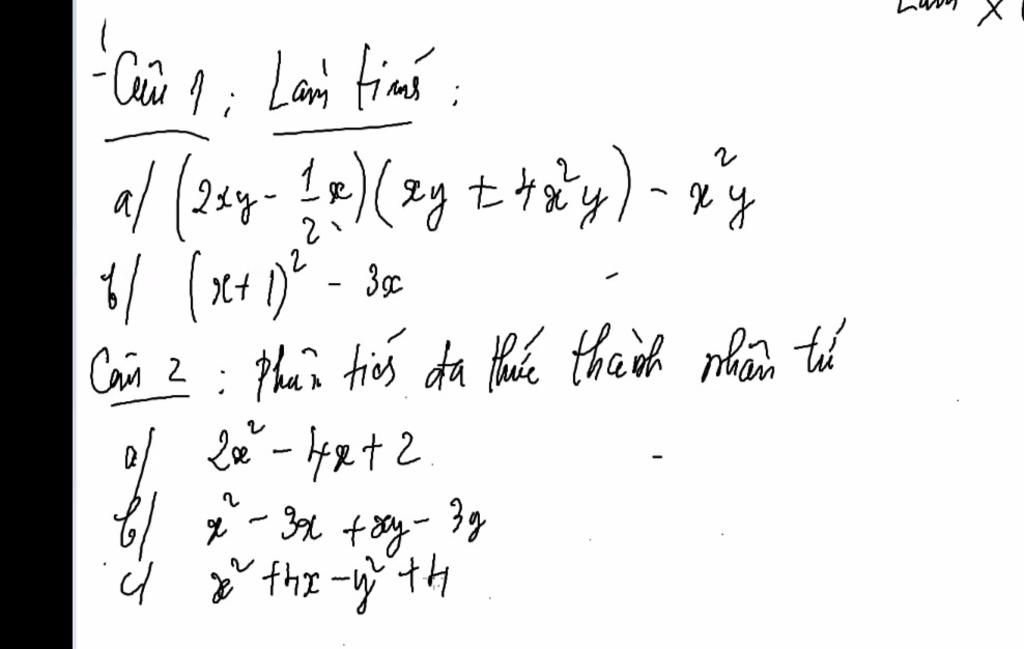 Câu 1: Làm tính:
a/ (2xy - 1/2 x)(xy ± 4x²y) - x²y
b/ (x+1)² - 3x
Câu 2: Phân tích đa thức thành nhân tử
a/ 2x² - 4x + 2
b/ x² - 3x + xy - 3y
c/ x² + 4x - y² + 4